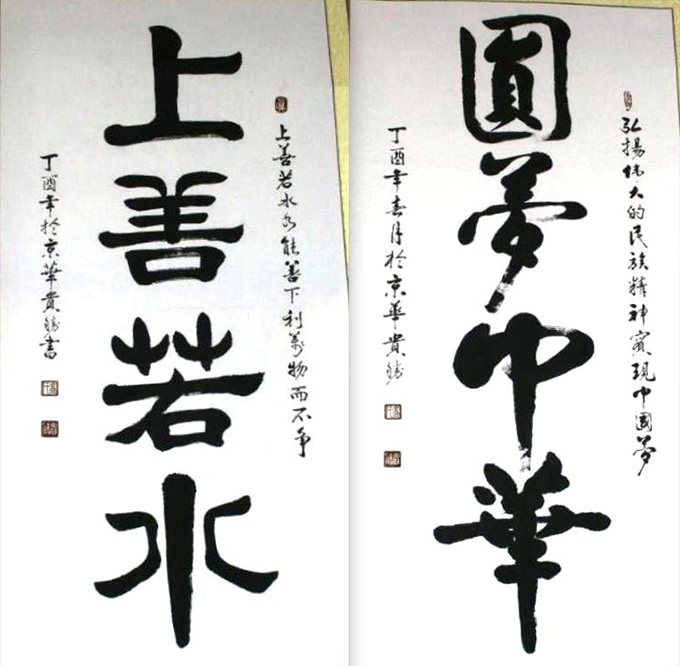 上善若水能善下利萬物而不争
上善若水
丁酉年於京華貴勝書
弘揚偉大的民族精神實現中國夢
圓夢中華
丁酉年春月於京華貴勝